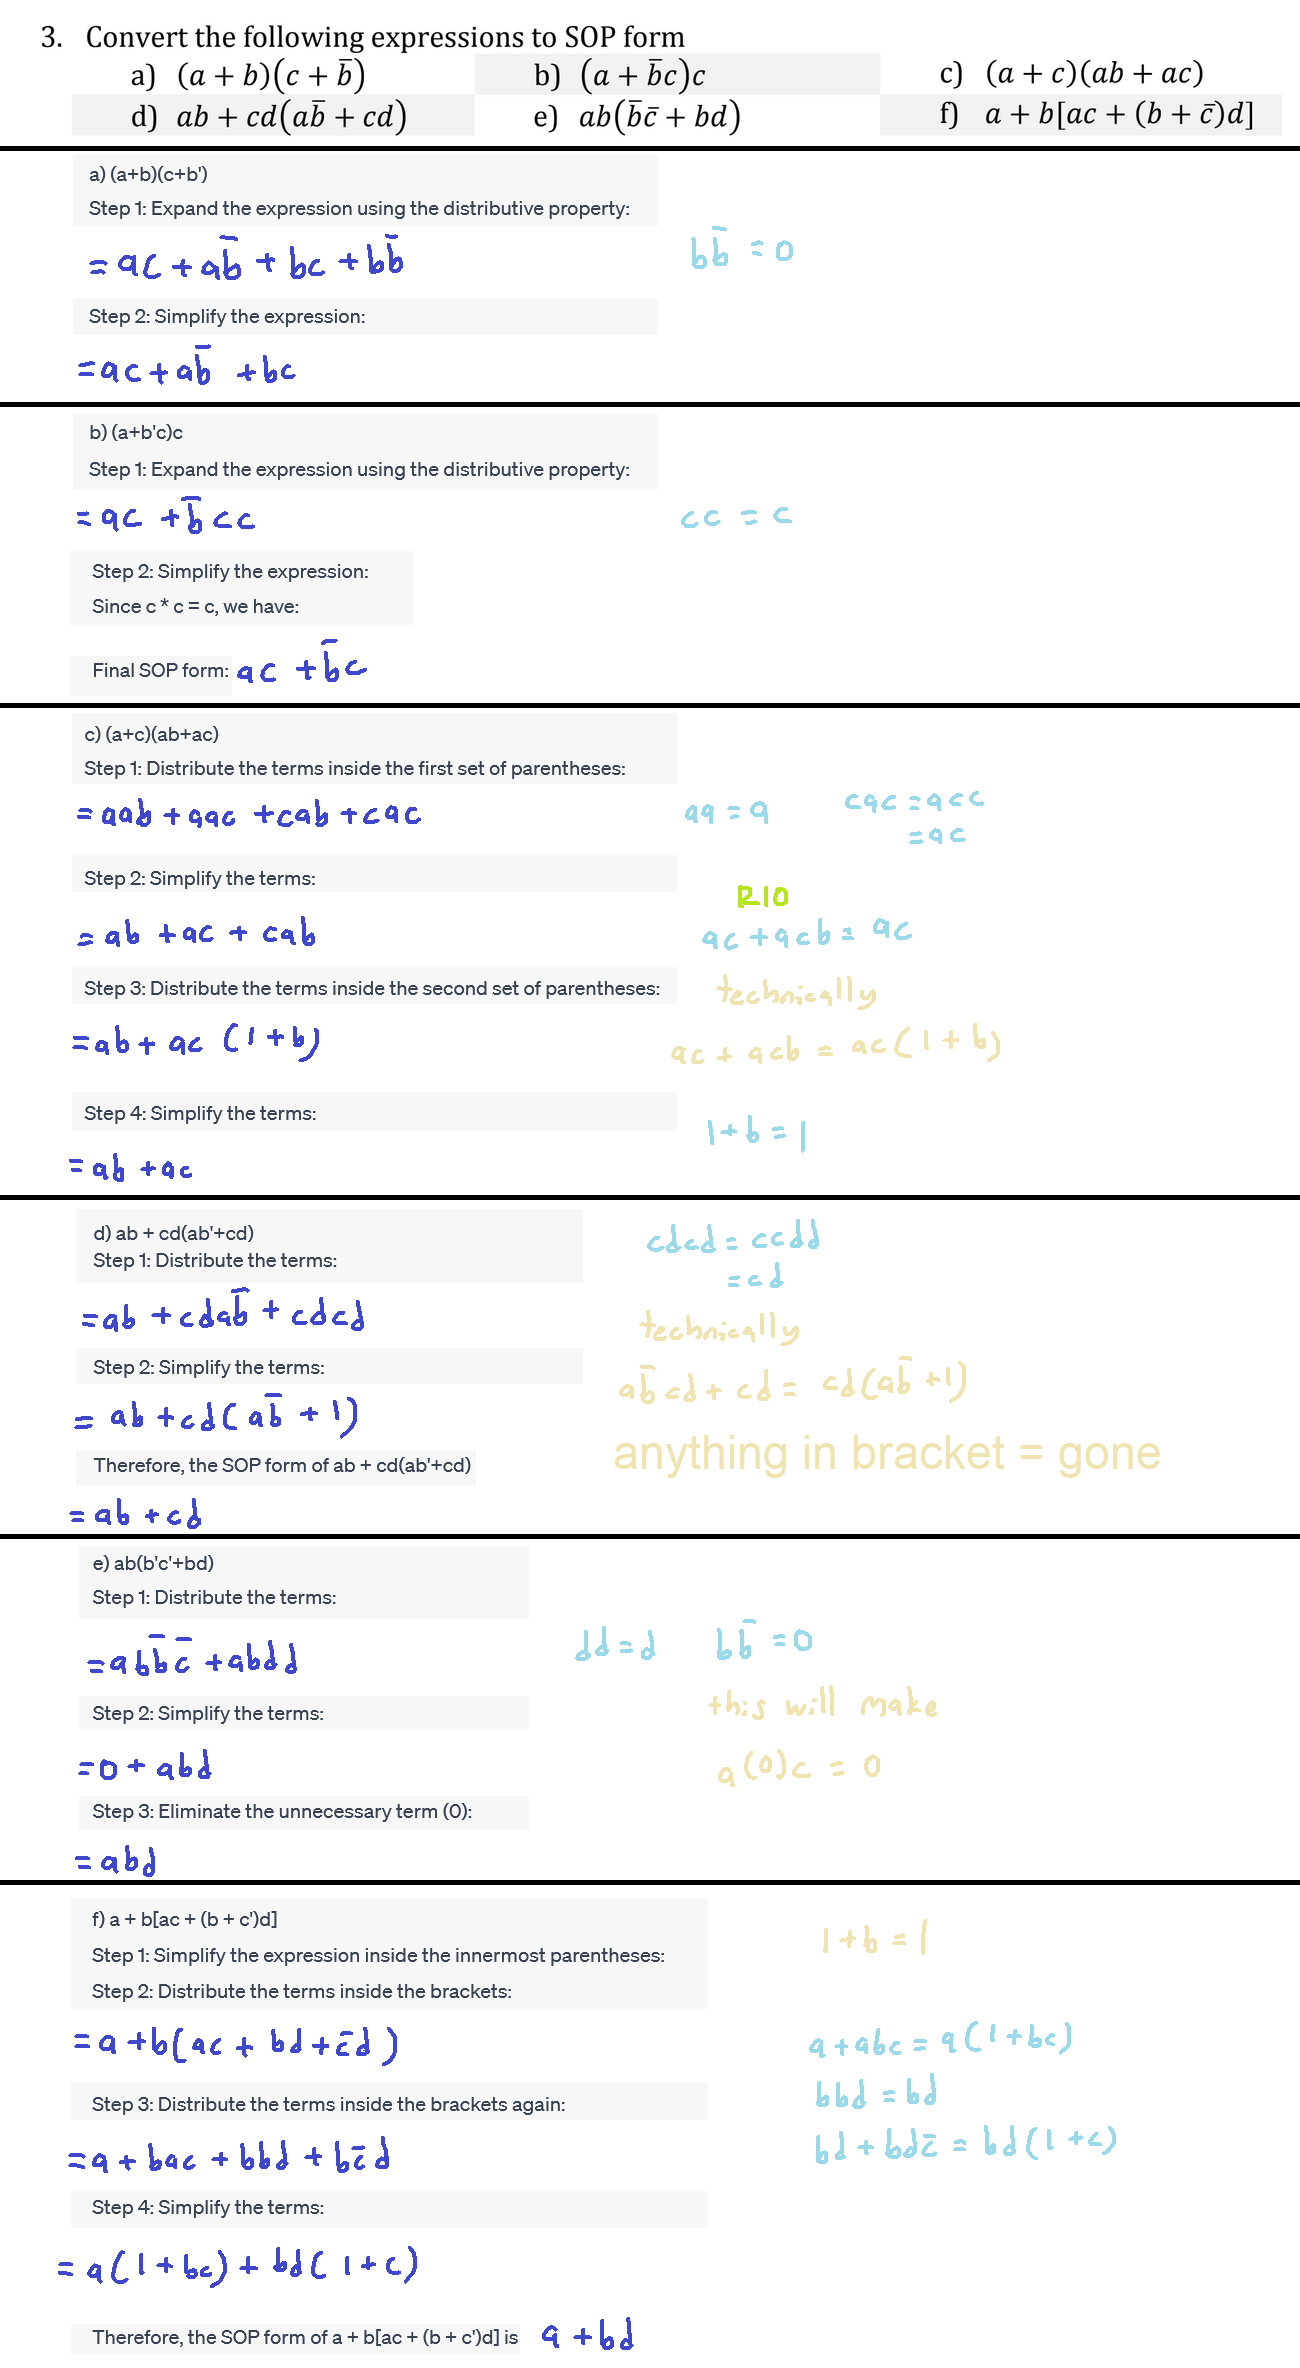 3. Convert the following expressions to SOP form
a) (a + b)(c + b̄) b) (a + b̄c)c c) (a + c)(ab + ac)
d) ab + cd(ab̄ + cd) e) ab(b̄c̄ + bd) f) a + b[ac + (b + c̄)d]
a) (a+b)(c+b')
Step 1: Expand the expression using the distributive property:
= ac + ab̄ + bc + bb̄
bb̄ = 0
Step 2: Simplify the expression:
= ac + ab̄ + bc
b) (a+b'c)c
Step 1: Expand the expression using the distributive property:
= ac + b̄cc
cc = c
Step 2: Simplify the expression:
Since c * c = c, we have:
Final SOP form: ac + b̄c
c) (a+c)(ab+ac)
Step 1: Distribute the terms inside the first set of parentheses:
= aab + aac + cab + cac
aa = a
cac = acc
= ac
Step 2: Simplify the terms:
R10
= ab + ac + cab
ac + acb = ac
Step 3: Distribute the terms inside the second set of parentheses:
technically
= ab + ac (1 + b)
ac + acb = ac(1 + b)
Step 4: Simplify the terms:
1 + b = 1
= ab + ac
d) ab + cd(ab'+cd)
Step 1: Distribute the terms:
cdcd = ccdd
= cd
= ab + cdab̄ + cdcd
technically
Step 2: Simplify the terms:
ab̄cd + cd = cd(ab̄ + 1)
= ab + cd(ab̄ + 1)
anything in bracket = gone
Therefore, the SOP form of ab + cd(ab'+cd)
= ab + cd
e) ab(b'c'+bd)
Step 1: Distribute the terms:
= abb̄c̄ + abdd
dd = d bb̄ = 0
this will make
Step 2: Simplify the terms:
= 0 + abd
a(0)c = 0
Step 3: Eliminate the unnecessary term (0):
= abd
f) a + b[ac + (b + c')d]
Step 1: Simplify the expression inside the innermost parentheses:
1 + b = 1
Step 2: Distribute the terms inside the brackets:
= a + b(ac + bd + c̄d)
a + abc = a(1 + bc)
bbd = bd
Step 3: Distribute the terms inside the brackets again:
= a + bac + bbd + bc̄d
bd + bdc̄ = bd(1 + c)
Step 4: Simplify the terms:
= a(1 + bc) + bd(1 + c)
Therefore, the SOP form of a + b[ac + (b + c')d] is a + bd